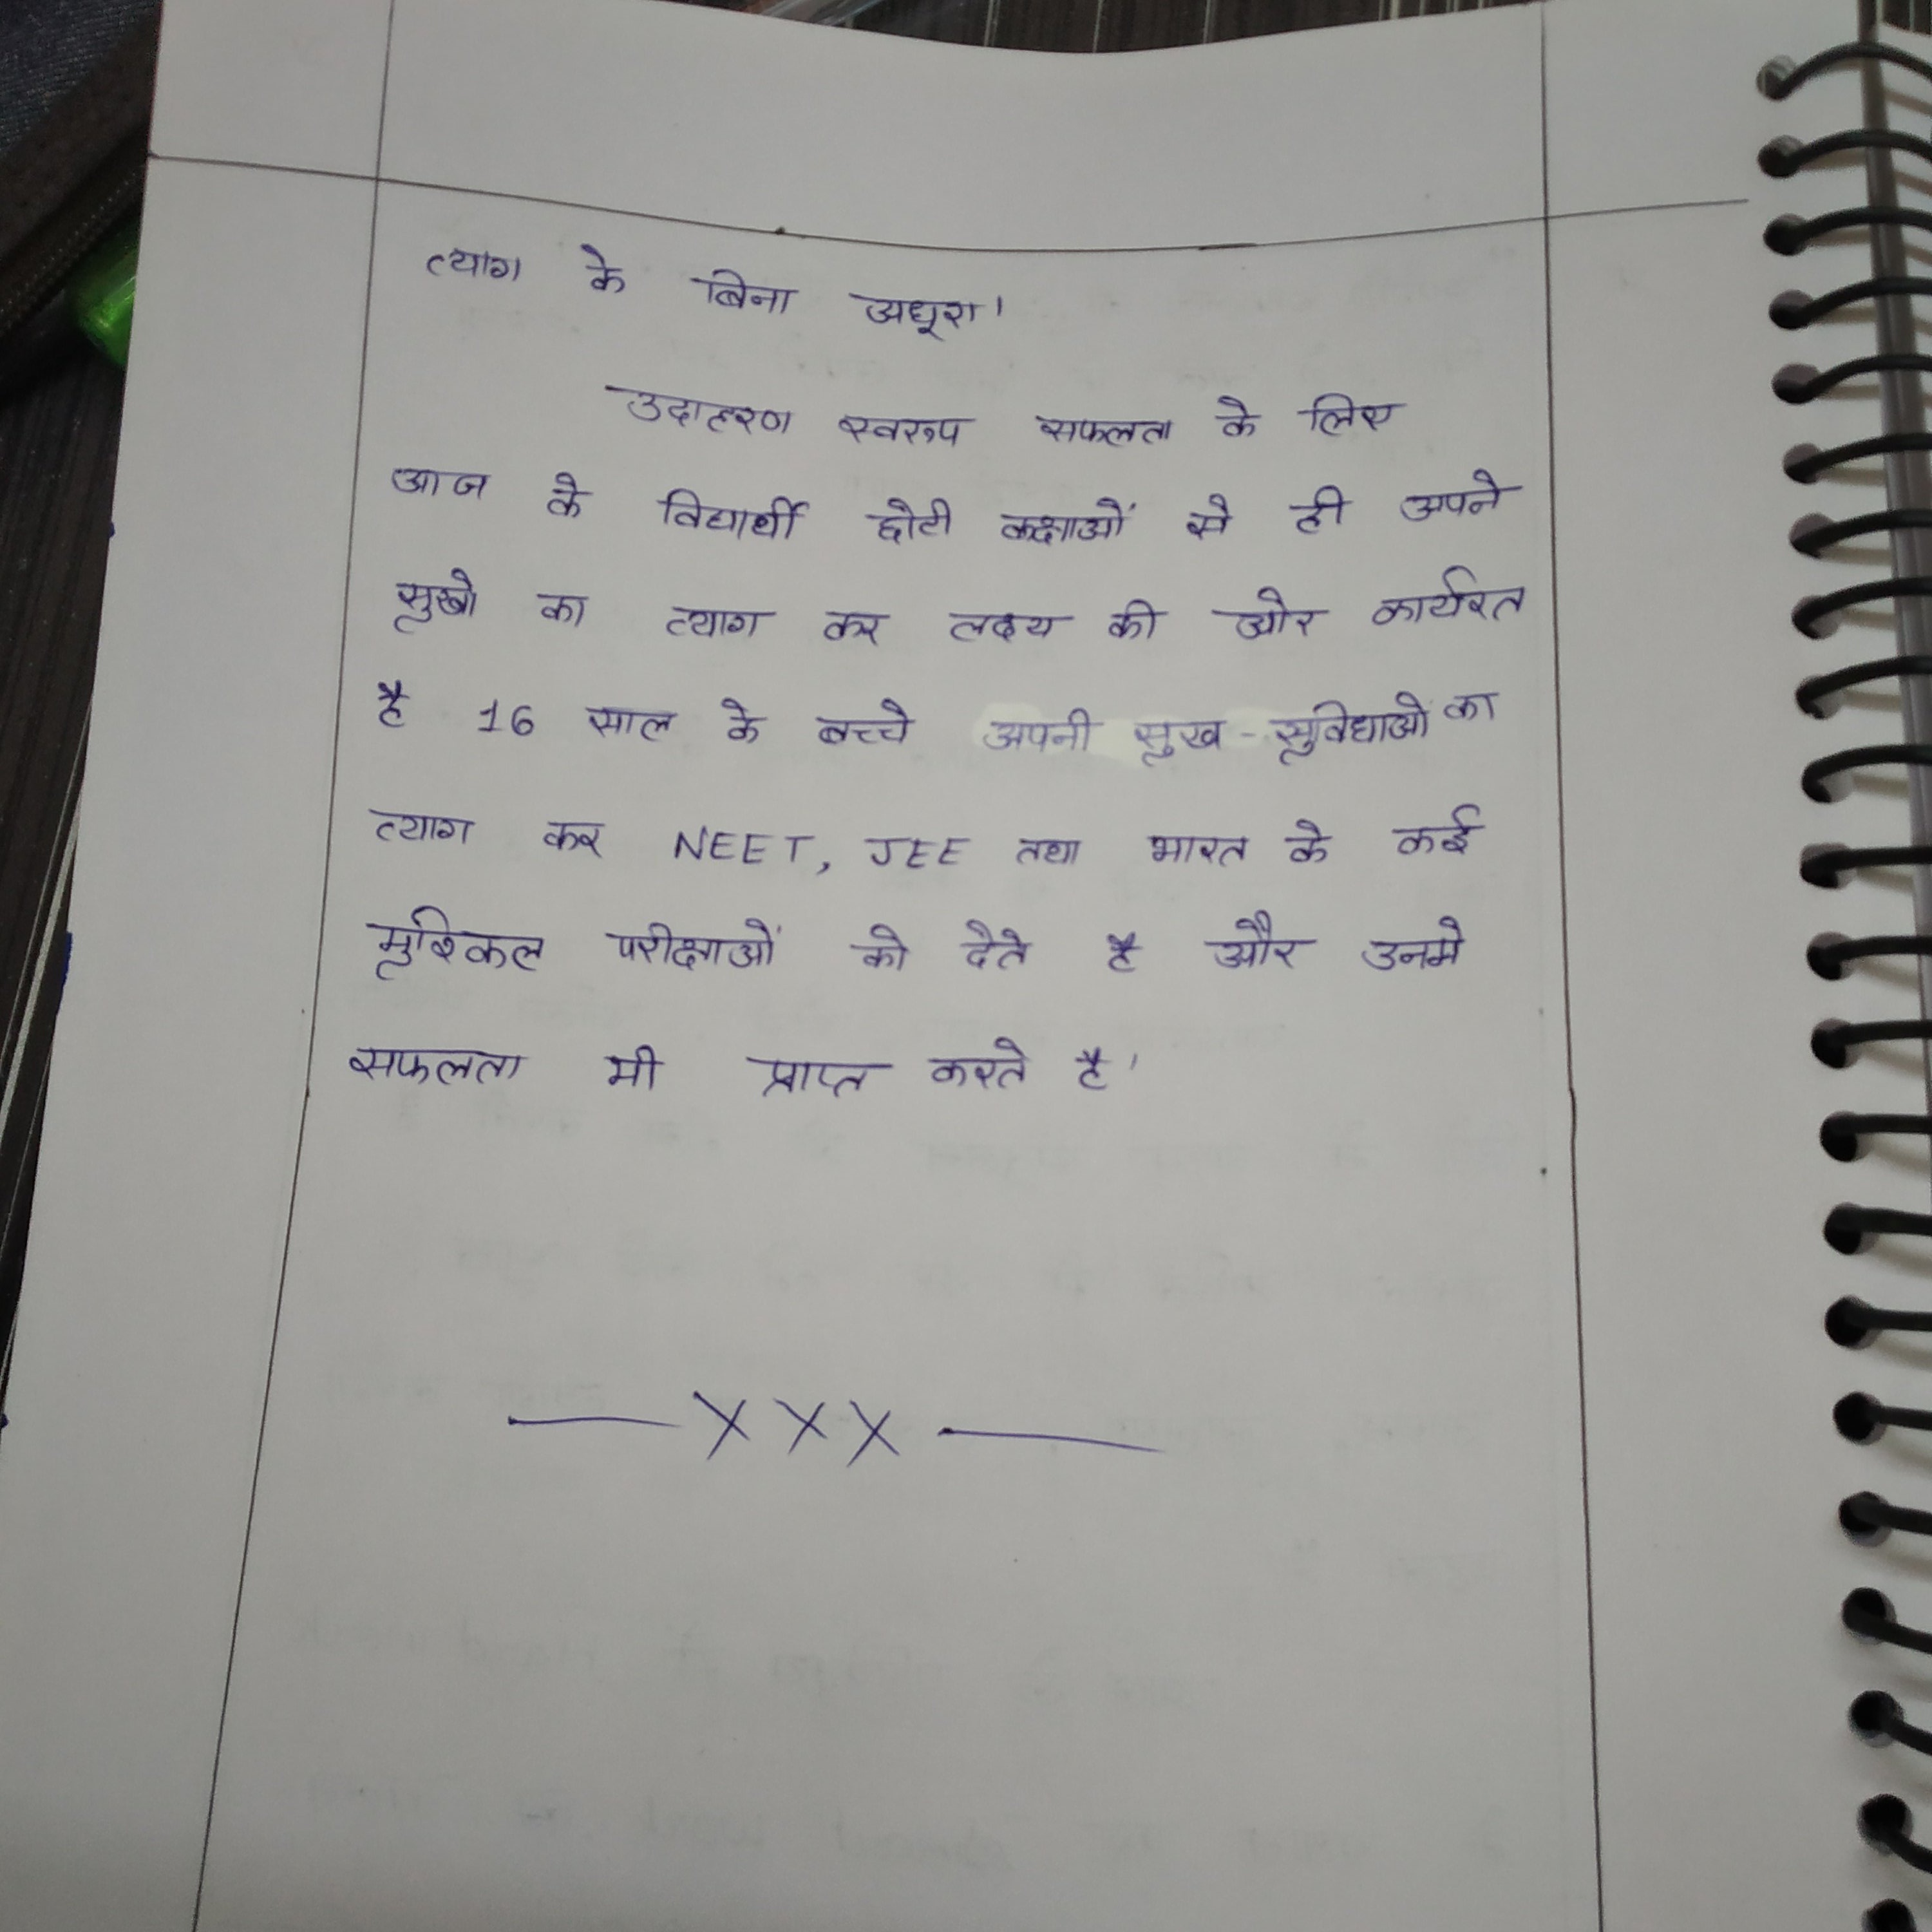 त्याग के बिना अधूरा।
उदाहरण स्वरूप सफलता के लिए
आज के विद्यार्थी छोटी कक्षाओं से ही अपने
सुखो का त्याग कर लक्ष्य की ओर कार्यरत
है 16 साल के बच्चे अपनी सुख-सुविधाओ का
त्याग कर NEET, JEE तथा भारत के कई
मुश्किल परीक्षाओं को देते है और उनमे
सफलता भी प्राप्त करते है।
— X X X —